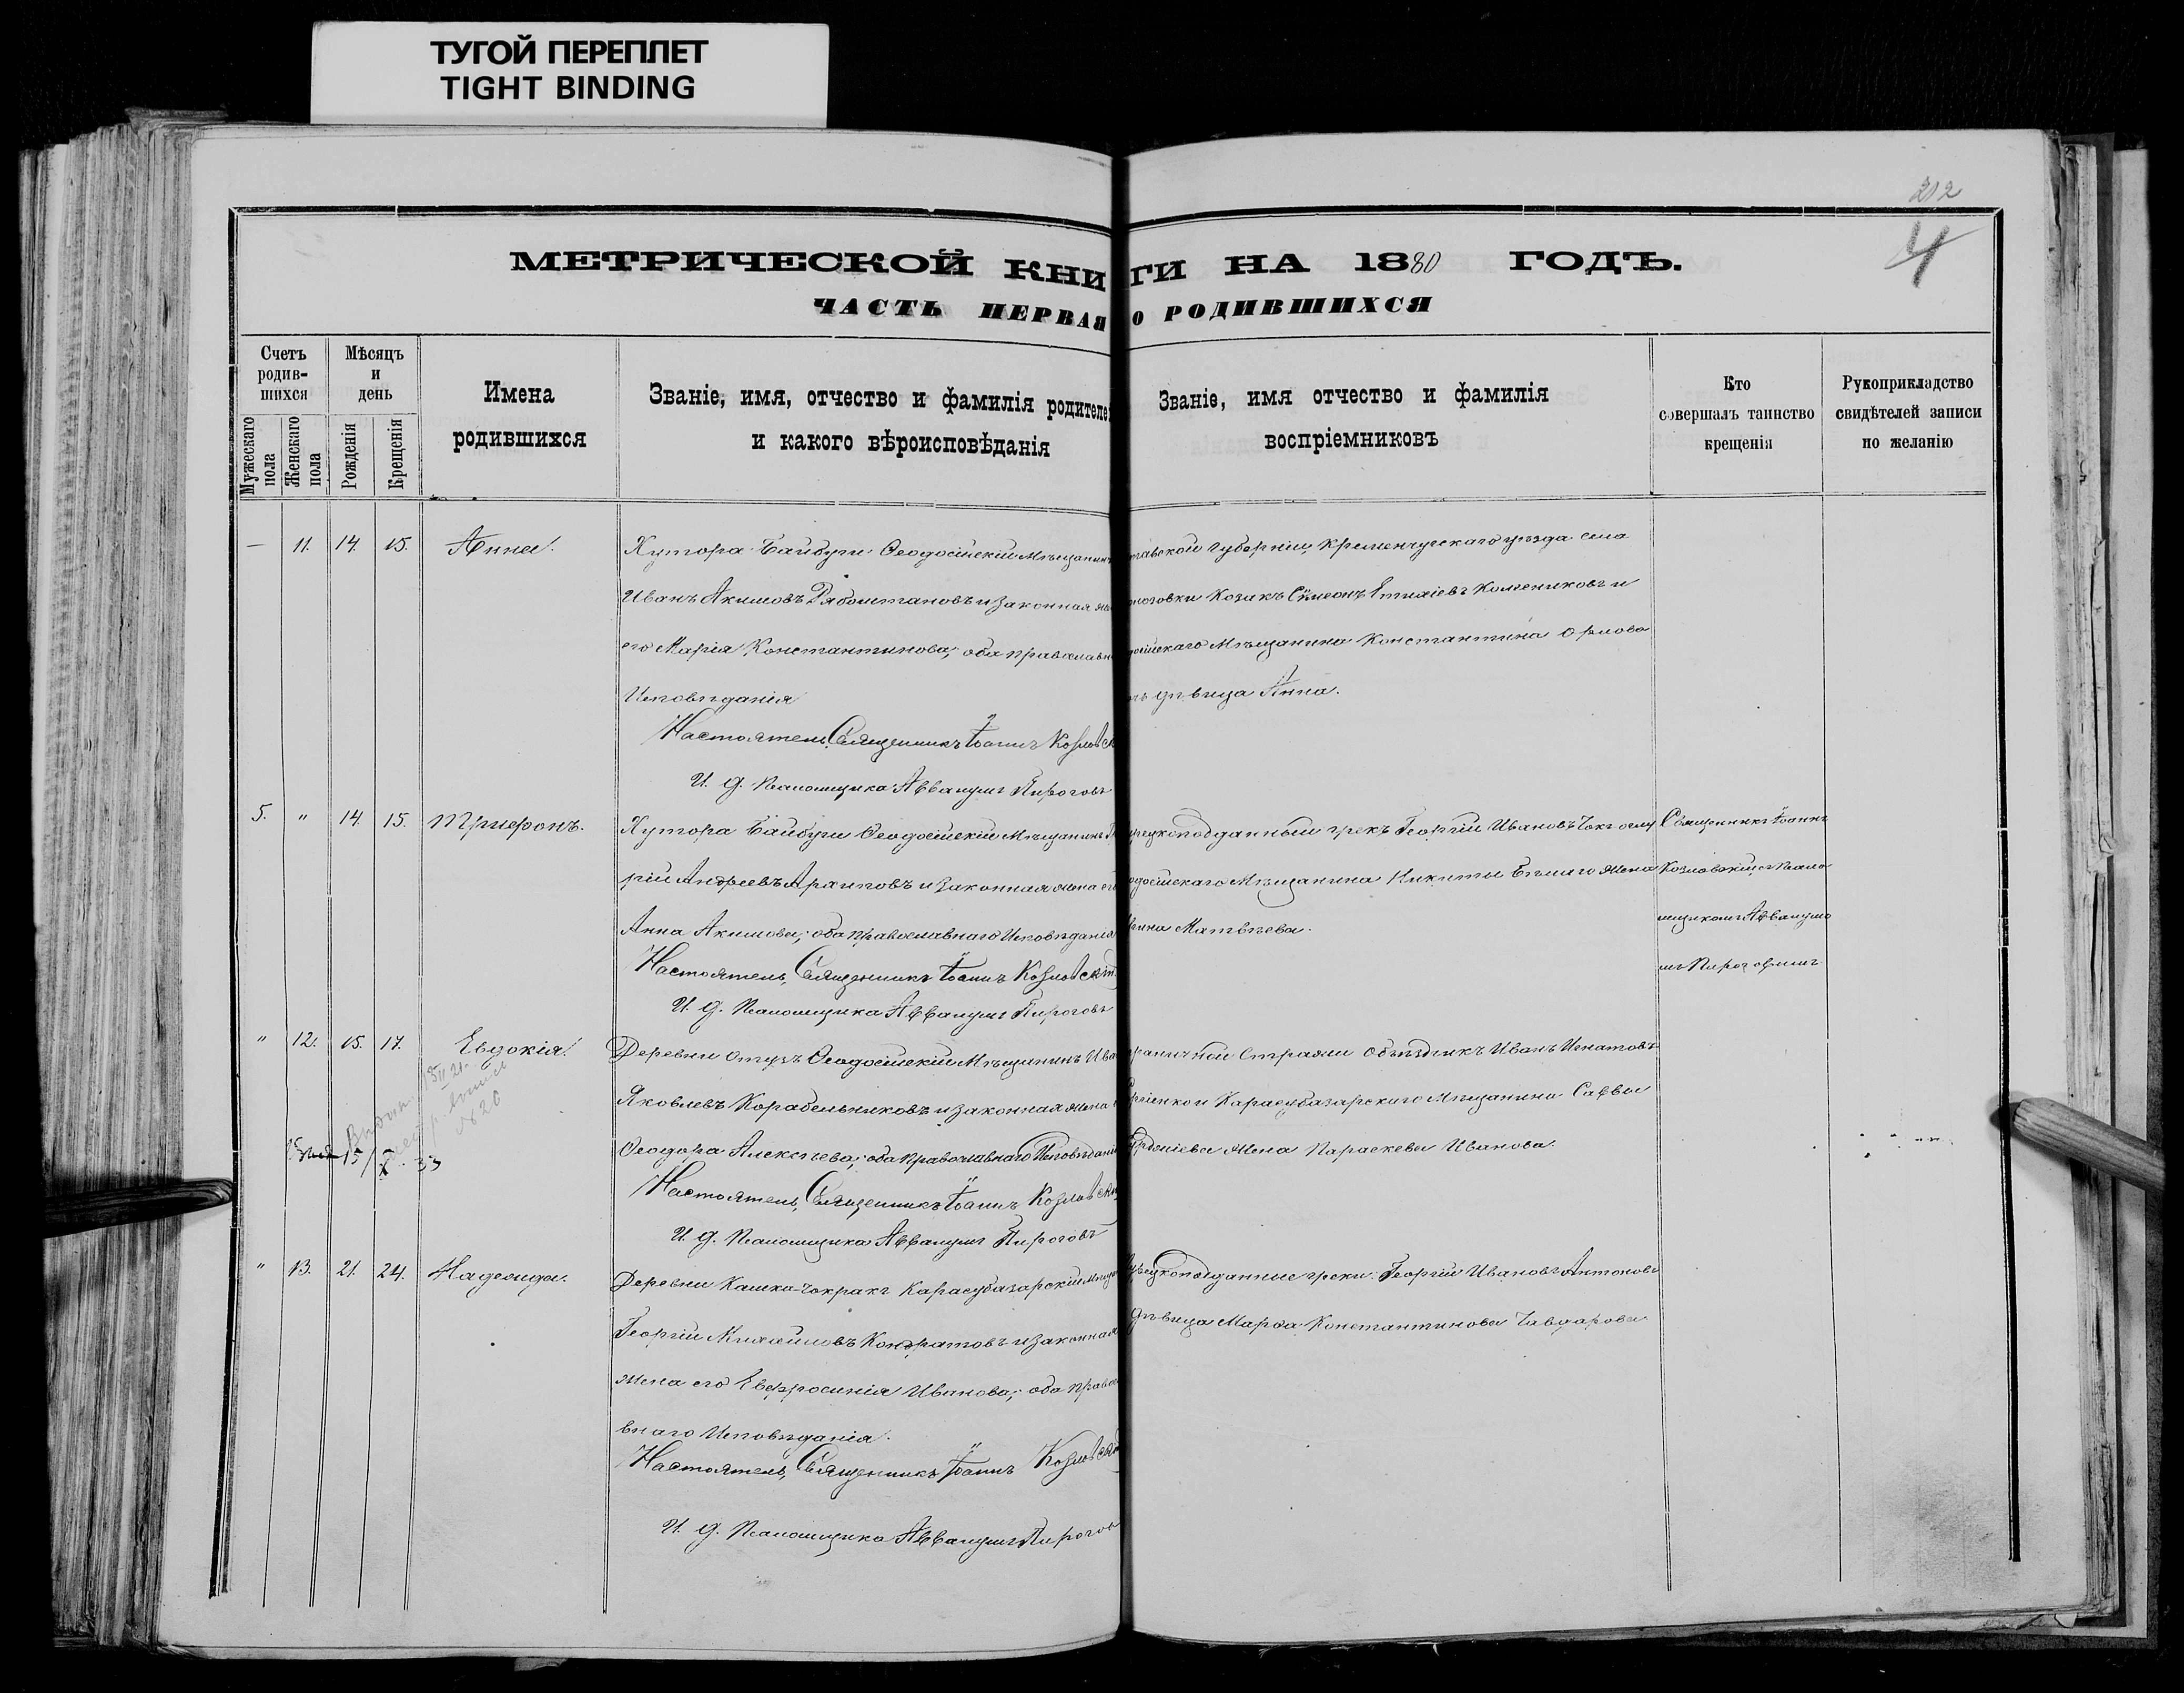 ТУГОЙ ПЕРЕПЛЕТ
TIGHT BINDING
212
4
МЕТРИЧЕСКОЙ КНИГИ НА 1880 ГОДЪ.
ЧАСТЬ ПЕРВАЯ О РОДИВШИХСЯ
Счетъ родив-шихся
Мужескаго пола
Женскаго пола
Мѣсяцъ и день
Рожденія
Крещенія
Имена родившихся
Званіе, имя, отчество и фамилія родителей
и какого вѣроисповѣданія
Званіе, имя отчество и фамилія
воспріемниковъ
Кто
совершалъ таинство
крещенія
Рукоприкладство
свидѣтелей записи
по желанію
— 11. 14. 15. Анна.
Хутора Байбуги Ѳеодосійскій Мѣщанинъ
Иванъ Акимовъ и законная
его Марія Константинова; оба православн
Исповѣданія
Настоятель, Священникъ Іоаннъ Козловск
И. д. Псаломщика Аввакумъ Пироговъ
тавской губерніи, Кременчугскаго уѣзда села
Козакъ Сѵмеонъ и
досійскаго Мѣщанина Константина Орлова
дѣвица Анна.
5. " 14. 15. Трифонъ.
Хутора Байбуги Ѳеодосійскій Мѣщанинъ
рій Андреевъ Архиповъ и законная жена его
Анна Акимова; оба православнаго Исповѣданія
Настоятель, Священникъ Іоаннъ Козловскій
И. д. Псаломщика Аввакумъ Пироговъ
урецкоподданный грекъ Георгій Ивановъ
одосійскаго Мѣщанина Никиты жена
рина Матвѣева.
Священникъ Іоаннъ
Козловскій, съ Псало
мщикомъ Аввакумо
мъ Пироговымъ.
" 12. 15. 17. Евдокія.
№ 20
Деревни Отузъ Ѳеодосійскій Мѣщанинъ Ива
Яковлевъ Корабельниковъ и законная жена
Ѳеодора Алексѣева; оба православнаго Исповѣданія
Настоятель, Священникъ Іоаннъ Козловскій
И. д. Псаломщика Аввакумъ Пироговъ
раничной Стражи Объѣздчикъ Иванъ Игнатовъ
и Карасубазарскаго Мѣщанина Саввы
жена Параскева Иванова.
" 13. 21. 24. Надежда.
Деревни Кашка-Чокракъ Карасубазарскій
Георгій Михайловъ Кондратовъ и законная
жена его Евфросинія Иванова; оба правосла
внаго Исповѣданія.
Настоятель, Священникъ Іоаннъ Козловскі
И. д. Псаломщика Аввакумъ Пирогов
Турецкоподданные греки: Георгій Ивановъ Антоновъ
дѣвица Марѳа Константинова Чавдарова